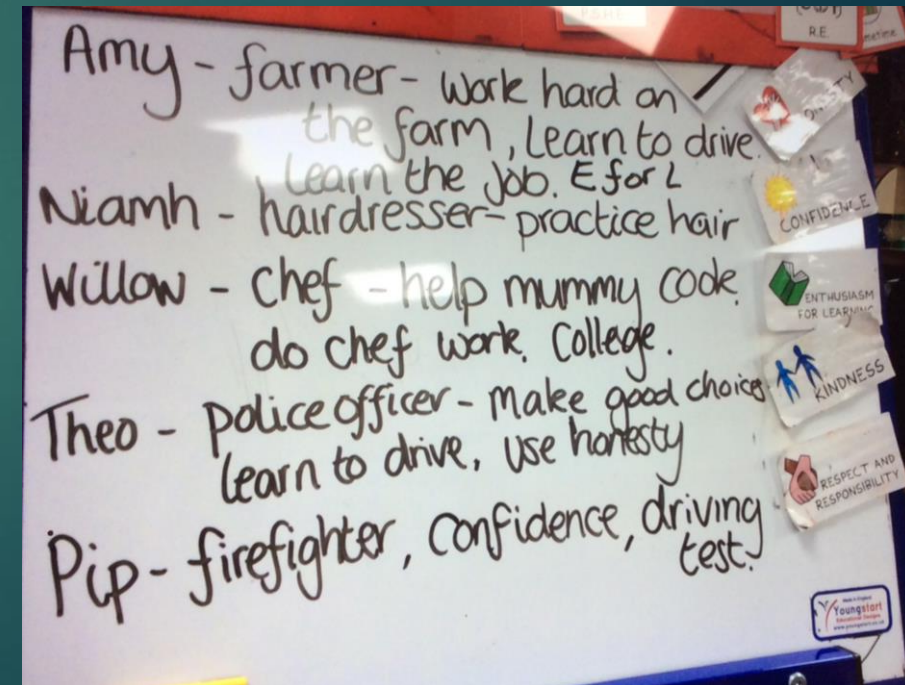 R.E.
Amy - farmer - work hard on
the farm, Learn to drive.
Learn the job. E for L
Niamh - hairdresser - practice hair
Willow - chef - help mummy cook.
do chef work. College.
Theo - police officer - make good choices
learn to drive, use honesty
Pip - firefighter, confidence, driving
test.
CONFIDENCE
ENTHUSIASM
FOR LEARNING
KINDNESS
RESPECT AND
RESPONSIBILITY
Youngstart